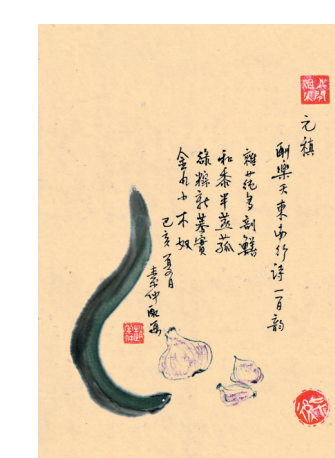 元稹
酬樂天東南行詩一百韵
雜莼多剖鱔
和黍半蒸菰
綠粽新菱實
金丸小木奴
己亥夏月